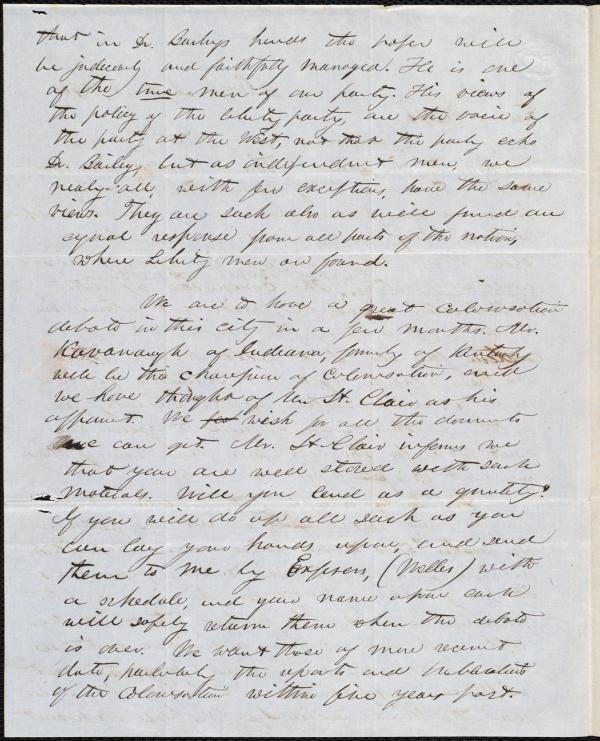 that in Dr. Baileys hands the paper will
be judiciously and faithfully managed. He is one
of the true men of our party. His views of
the policy of the liberty party, are the voice of
the party at the West, not that the party echo
Dr. Bailey, but as independent men, we
nearly all, with few exceptions, have the same
views. They are such also as will find an
equal response from all parts of the nation,
where Liberty men are found.
We are to have a great colonisation
debate in this city in a few months. Mr.
Kavanaugh of Indiana, formerly of Kentucky
will be the champion of colonisation, and
we have thought of Mr St. Clair as his
opponent. We wish for all the documents
we can get. Mr. St Clair informs me
that you are well stored with such
materials. Will you lend us a quantity?
If you will do up all such as you
can lay your hands upon, and send
them to me by Express, (Welles) with
a schedule, and your name upon each
will safely return them when the debate
is over. We want those of more recent
date, particularly the reports and
of the Colonisation within five years past.